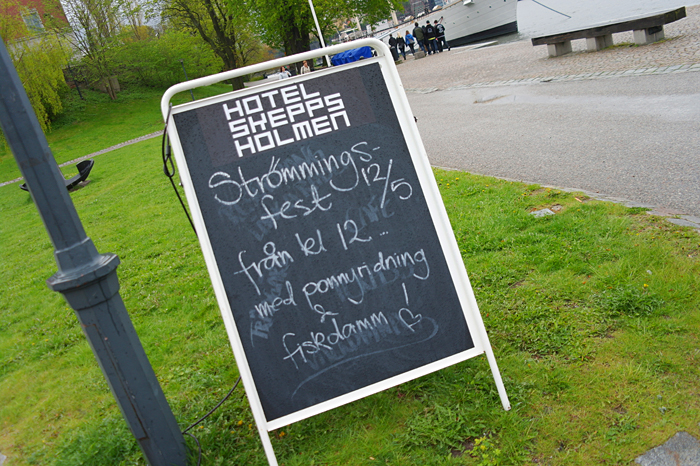 HOTEL
SKEPPS
HOLMEN
Strömmings-
fest 12/5
från kl 12...
med ponnyridning
&
fiskdamm!